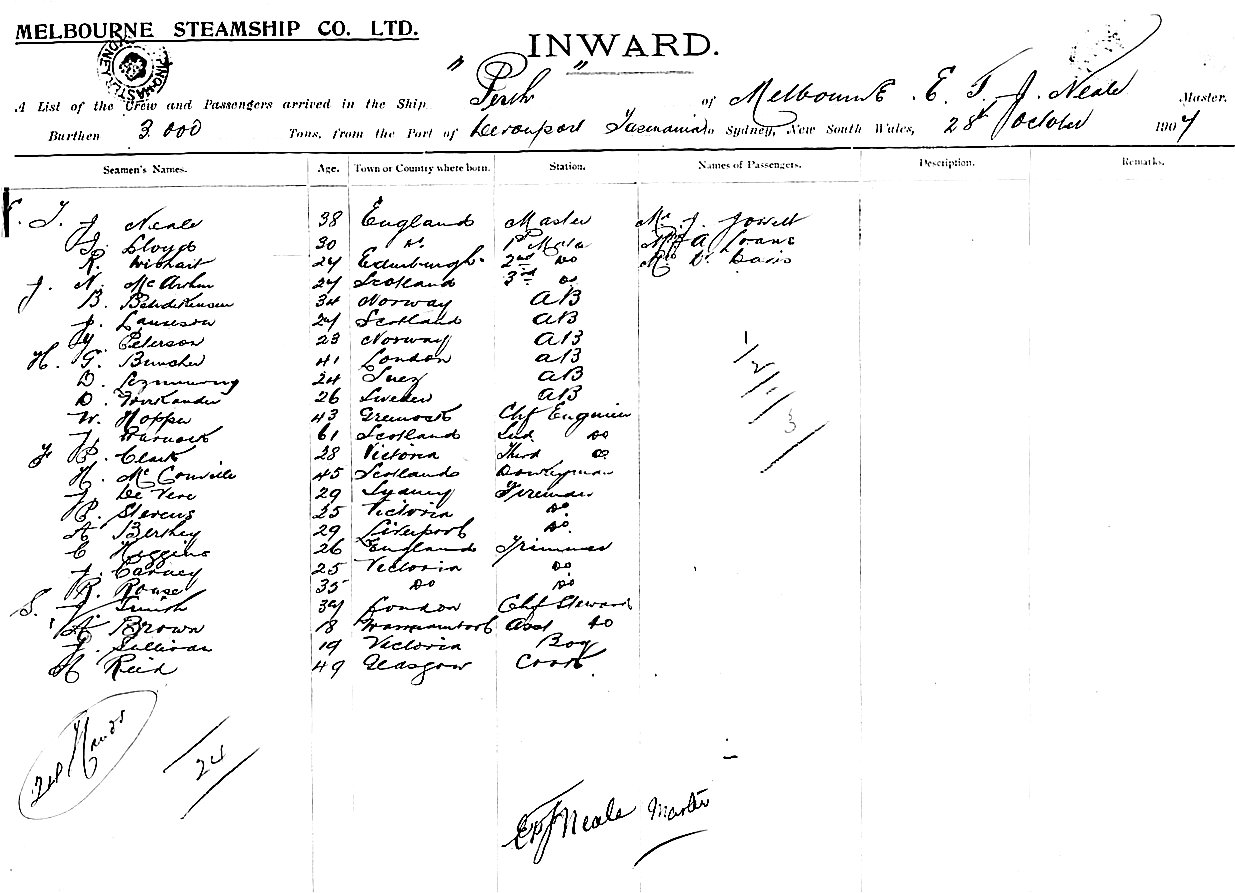 MELBOURNE STEAMSHIP CO. LTD.
INWARD.
A List of the Crew and Passengers arrived in the Ship "Perth" of Melbourne E. T. J. Neale Master.
Burthen 3.000 Tons, from the Port of Devonport Tasmania to Sydney, New South Wales, 28th October 1907
Seamen's Names. Age. Town or Country where born. Station. Names of Passengers. Description. Remarks.
E. T. J. Neale 38 England Master Mr J. Jowett
J. Lloyd 30 Do. 1st Mate A
R. Wishart 27 Edinburgh 2nd Do Davis
J. N. McArthur 27 Scotland 3rd Do
B. 34 Norway AB
J. 27 Scotland AB
Peterson 23 Norway AB
H. G. Buncher 41 London AB
D. 24 Suez AB
D. 26 Sweden AB
W. Hopper 43 Greenock Chf Engineer
J. Warnock 61 Scotland 2nd Do
F P. Clark 28 Victoria Third Do
H. McConville 45 Scotland Donkeyman
J. De Vere 29 Sydney Fireman
P. Stevens 25 Victoria Do
A Berthey 29 Liverpool Do
C Higgins 26 England Trimmer
J. Carney 25 Victoria Do
R. Rouse 35 Do Do
S. J. Smith 39 London Chf Steward
A Brown 18 Warrnambool Asst Do
J. Sullivan 19 Victoria Boy
H Reid 49 Glasgow Cook
1/2/1/3
24 Hands
24
E T J Neale Master